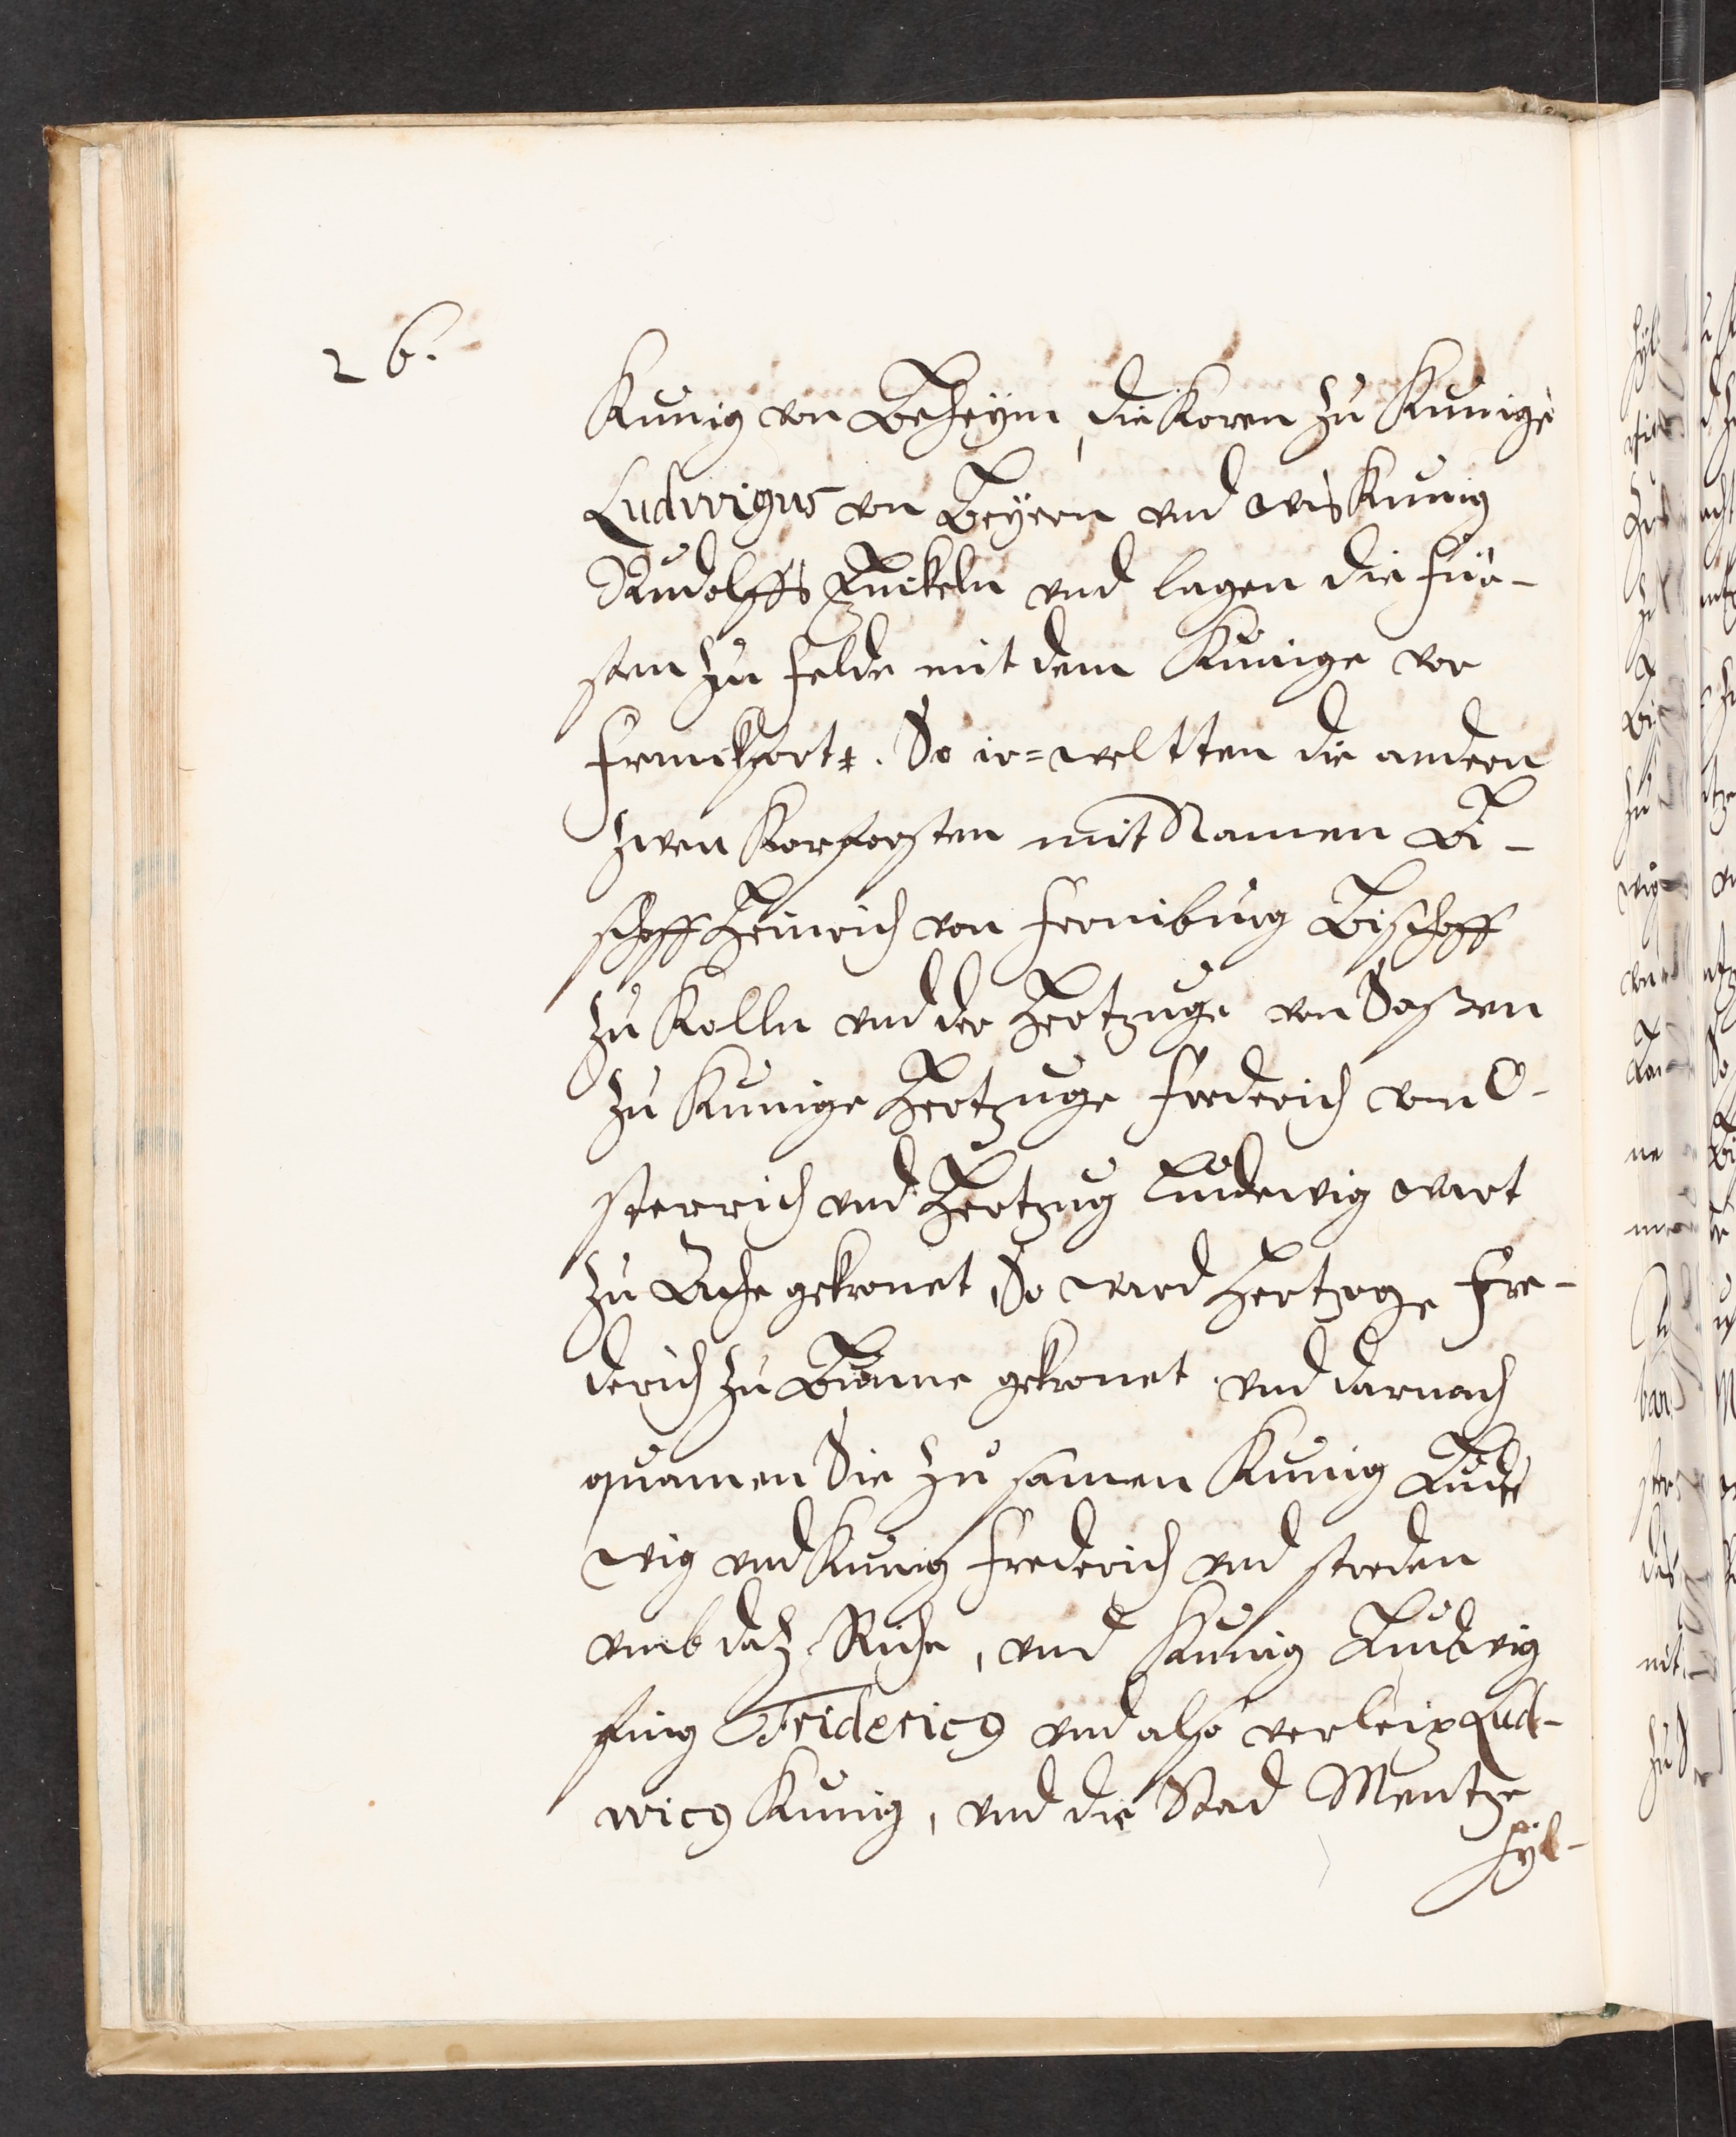 2 b.
Kunig von Beheym, die Koren zu Kunige
Ludwigus von Beyern und was Kunig
Rudolffs Enckeln und lagen die Fur-
sten zu Felde mit dem Kunige vor
Franckfort. So ir-weltten die andern
zwen Korforsten mit Namen Bi-
schoff Heinrich von Fernibürg Bischoff
zu Kolln und der Hertzuge von Saßen
zu Kunige Hertzuge Frederich von O-
sterrich und Hertzug Ludewig wart
zu Ache gekronet, So ward Hertzoge Fre-
derich zu Bonne gekronet und darnach
quamen Sie zu samen Kunig Lude
wig und Kunig Frederich und streden
umb daz Riche, und Kunig Ludwig
fing Fridericg und also verleip Lud-
wicg Kunig, und die Stad Mentze
hyl-